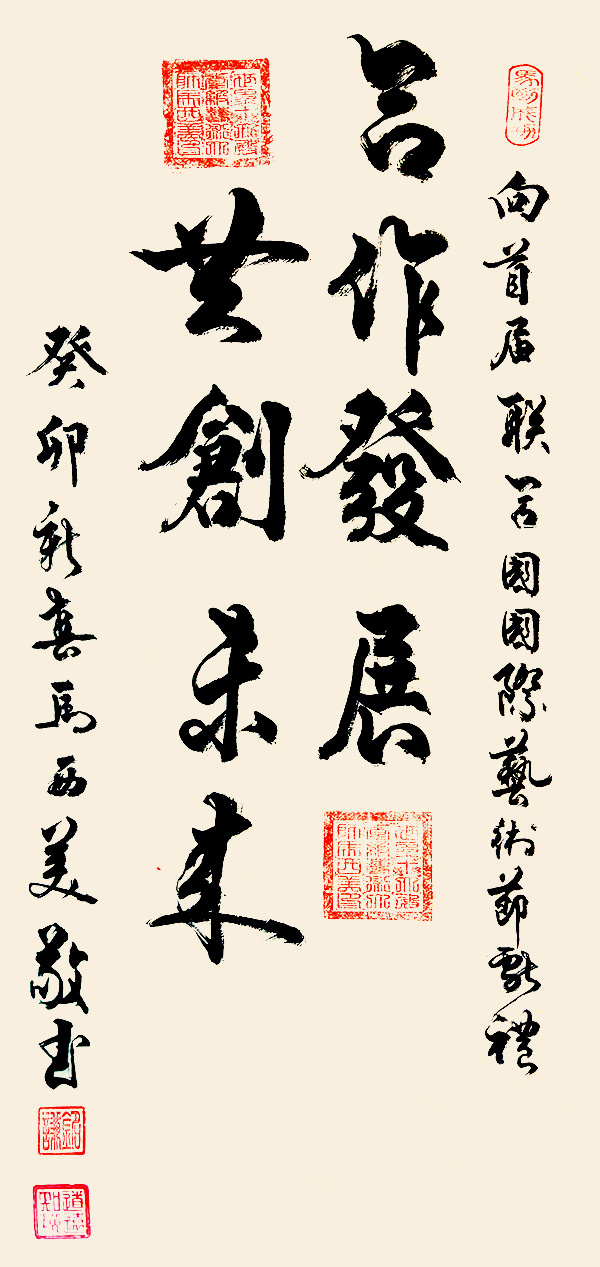 向首届联合國國際藝術節献禮
合作發展
共創未来
癸卯新真馬西美敬书